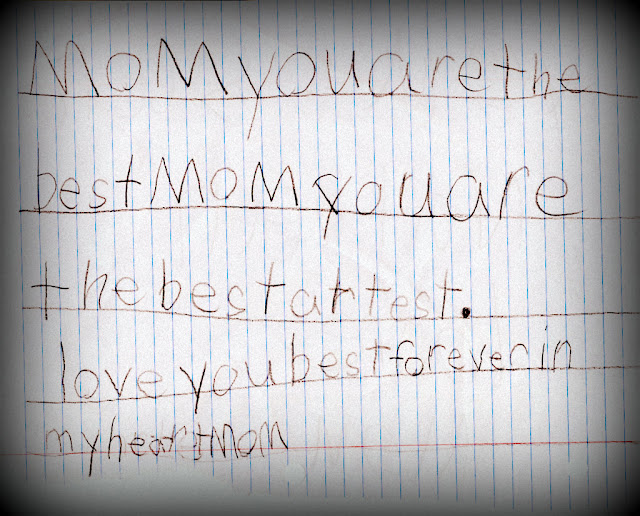 MoM you are the
best MoM you are
the best artest.
love you best forever in
my heart MoM